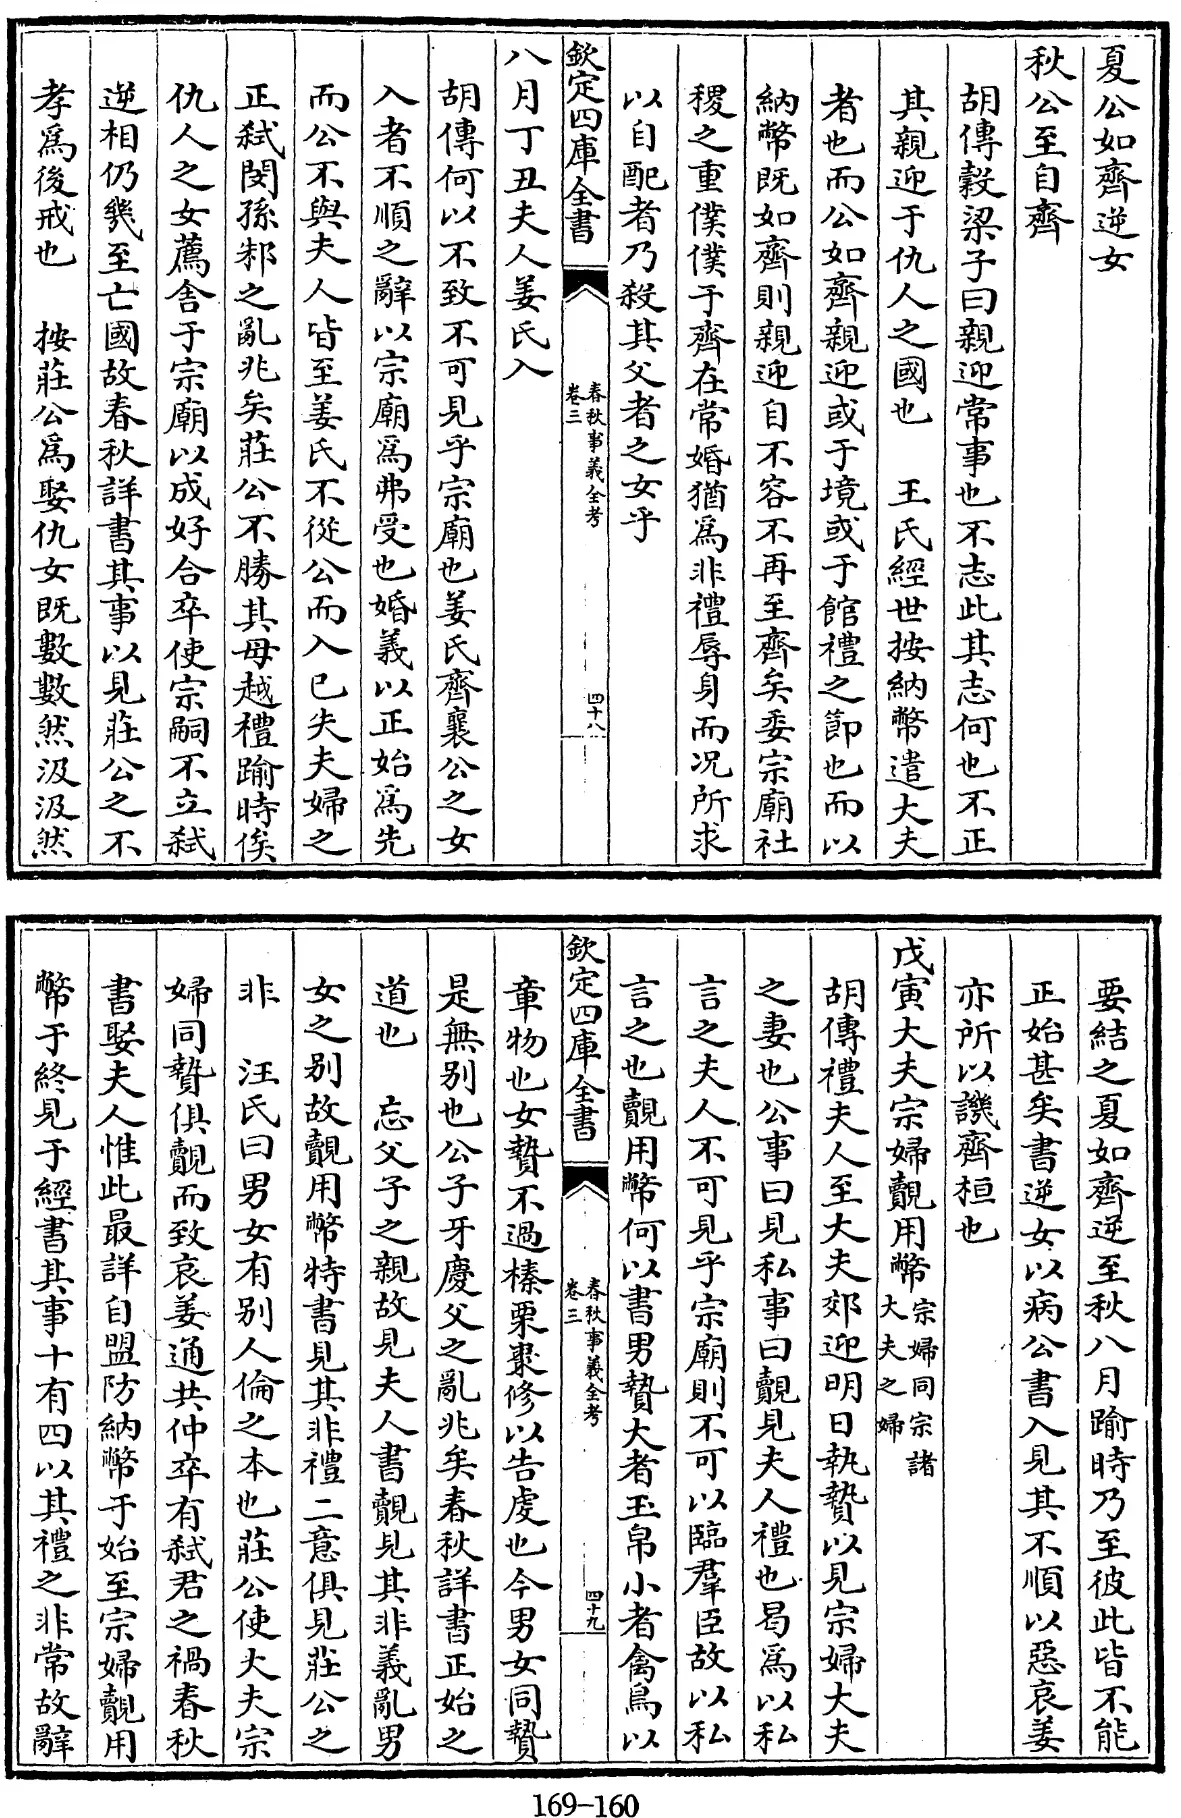 夏公如齊逆女
秋公至自齊
胡傳穀梁子曰親迎常事也不志此其志何也不正
其親迎于仇人之國也　王氏經世按納幣遣大夫
者也而公如齊親迎或于境或于館禮之節也而以
納幣既如齊則親迎自不容不再至齊矣委宗廟社
稷之重僕僕于齊在常婚猶爲非禮辱身而况所求
以自配者乃殺其父者之女乎
欽定四庫全書
春秋事義全考
卷三
四十八
八月丁丑夫人姜氏入
胡傳何以不致不可見乎宗廟也姜氏齊襄公之女
入者不順之辭以宗廟爲弗受也婚義以正始爲先
而公不與夫人皆至姜氏不從公而入已失夫婦之
正弑閔孫邾之亂兆矣莊公不勝其母越禮踰時俟
仇人之女薦舍于宗廟以成好合卒使宗嗣不立弑
逆相仍幾至亡國故春秋詳書其事以見莊公之不
孝爲後戒也　按莊公爲娶仇女既數數然汲汲然
要結之夏如齊逆至秋八月踰時乃至彼此皆不能
正始甚矣書逆女以病公書入見其不順以惡哀姜
亦所以譏齊桓也
戊寅大夫宗婦覿用幣宗婦同宗諸
大夫之婦
胡傳禮夫人至大夫郊迎明日執贄以見宗婦大夫
之妻也公事曰見私事曰覿見夫人禮也曷爲以私
言之夫人不可見乎宗廟則不可以臨羣臣故以私
言之也覿用幣何以書男贄大者玉帛小者禽鳥以
欽定四庫全書
春秋事義全考
卷三
四十九
章物也女贄不過榛栗棗修以告虔也今男女同贄
是無別也公子牙慶父之亂兆矣春秋詳書正始之
道也　忘父子之親故見夫人書覿見其非義亂男
女之别故覿用幣特書見其非禮二意俱見莊公之
非　汪氏曰男女有别人倫之本也莊公使大夫宗
婦同贄俱覿而致哀姜通共仲卒有弑君之禍春秋
書娶夫人惟此最詳自盟防納幣于始至宗婦覿用
幣于終見于經書其事十有四以其禮之非常故辭
169-160